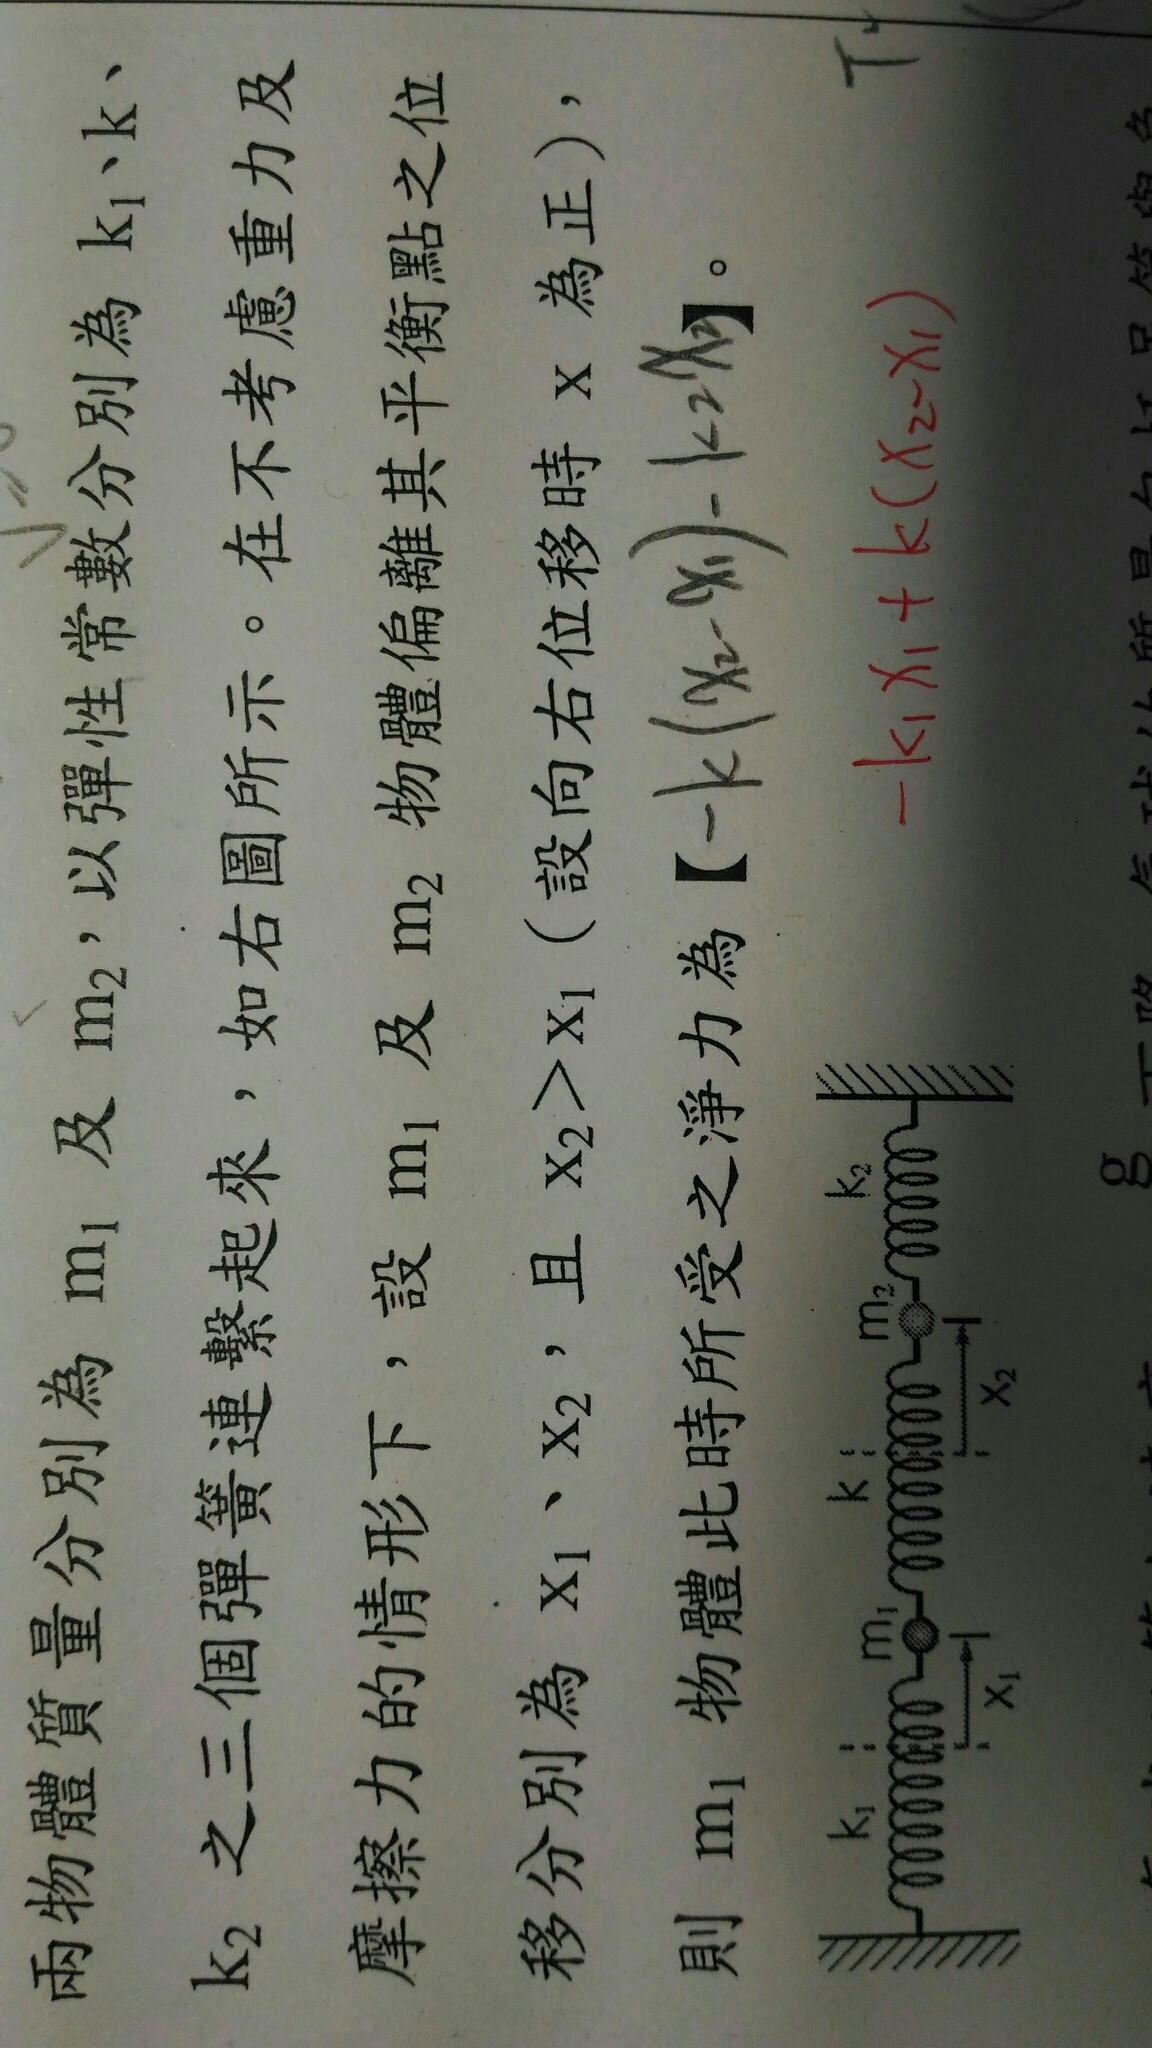 兩物體質量分別為 m₁ 及 m₂，以彈性常數分別為 k₁、k、
k₂ 之三個彈簧連繫起來，如右圖所示。在不考慮重力及
摩擦力的情形下，設 m₁ 及 m₂ 物體偏離其平衡點之位
移分別為 x₁、x₂，且 x₂>x₁（設向右位移時 x 為正），
則 m₁ 物體此時所受之淨力為【-k(x₂-x₁)-k₂x₂】。
-k₁x₁+k(x₂-x₁)
k₁ m₁ k m₂ k₂
x₁ x₂
g